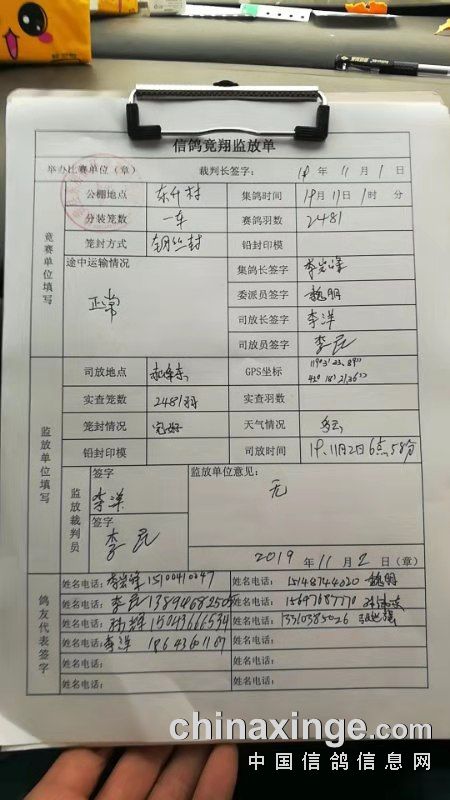 信鸽竞翔监放单
举办比赛单位（章） 裁判长签字： 19年 11月 1日
竞赛单位填写
公棚地点 集鸽时间 19月11日1时 分
分装笼数 一车 赛鸽羽数 2481
笼封方式 钢丝封 铅封印模
途中运输情况 正常
集鸽长签字 李岩峰
委派员签字 魏明
司放长签字 李洋
司放员签字 李昆
监放单位填写
司放地点 GPS坐标
实查笼数 2481羽 实查羽数
笼封情况 完好 天气情况
铅封印模 司放时间 19.11月2日6点58分
监放裁判员
签字 李洋
签字 李昆
监放单位意见：
无
2019年 11月 2日（章）
鸽友代表签字
姓名电话：李岩峰 15100410047 姓名电话：15148744020 魏明
姓名电话：李昆 13894682505 姓名电话：15647687770
姓名电话： 15043661534 姓名电话：13310385026
姓名电话：李洋 姓名电话：
姓名电话： 姓名电话：
姓名电话： 姓名电话：
chinaxinge.com
中国信鸽信息网